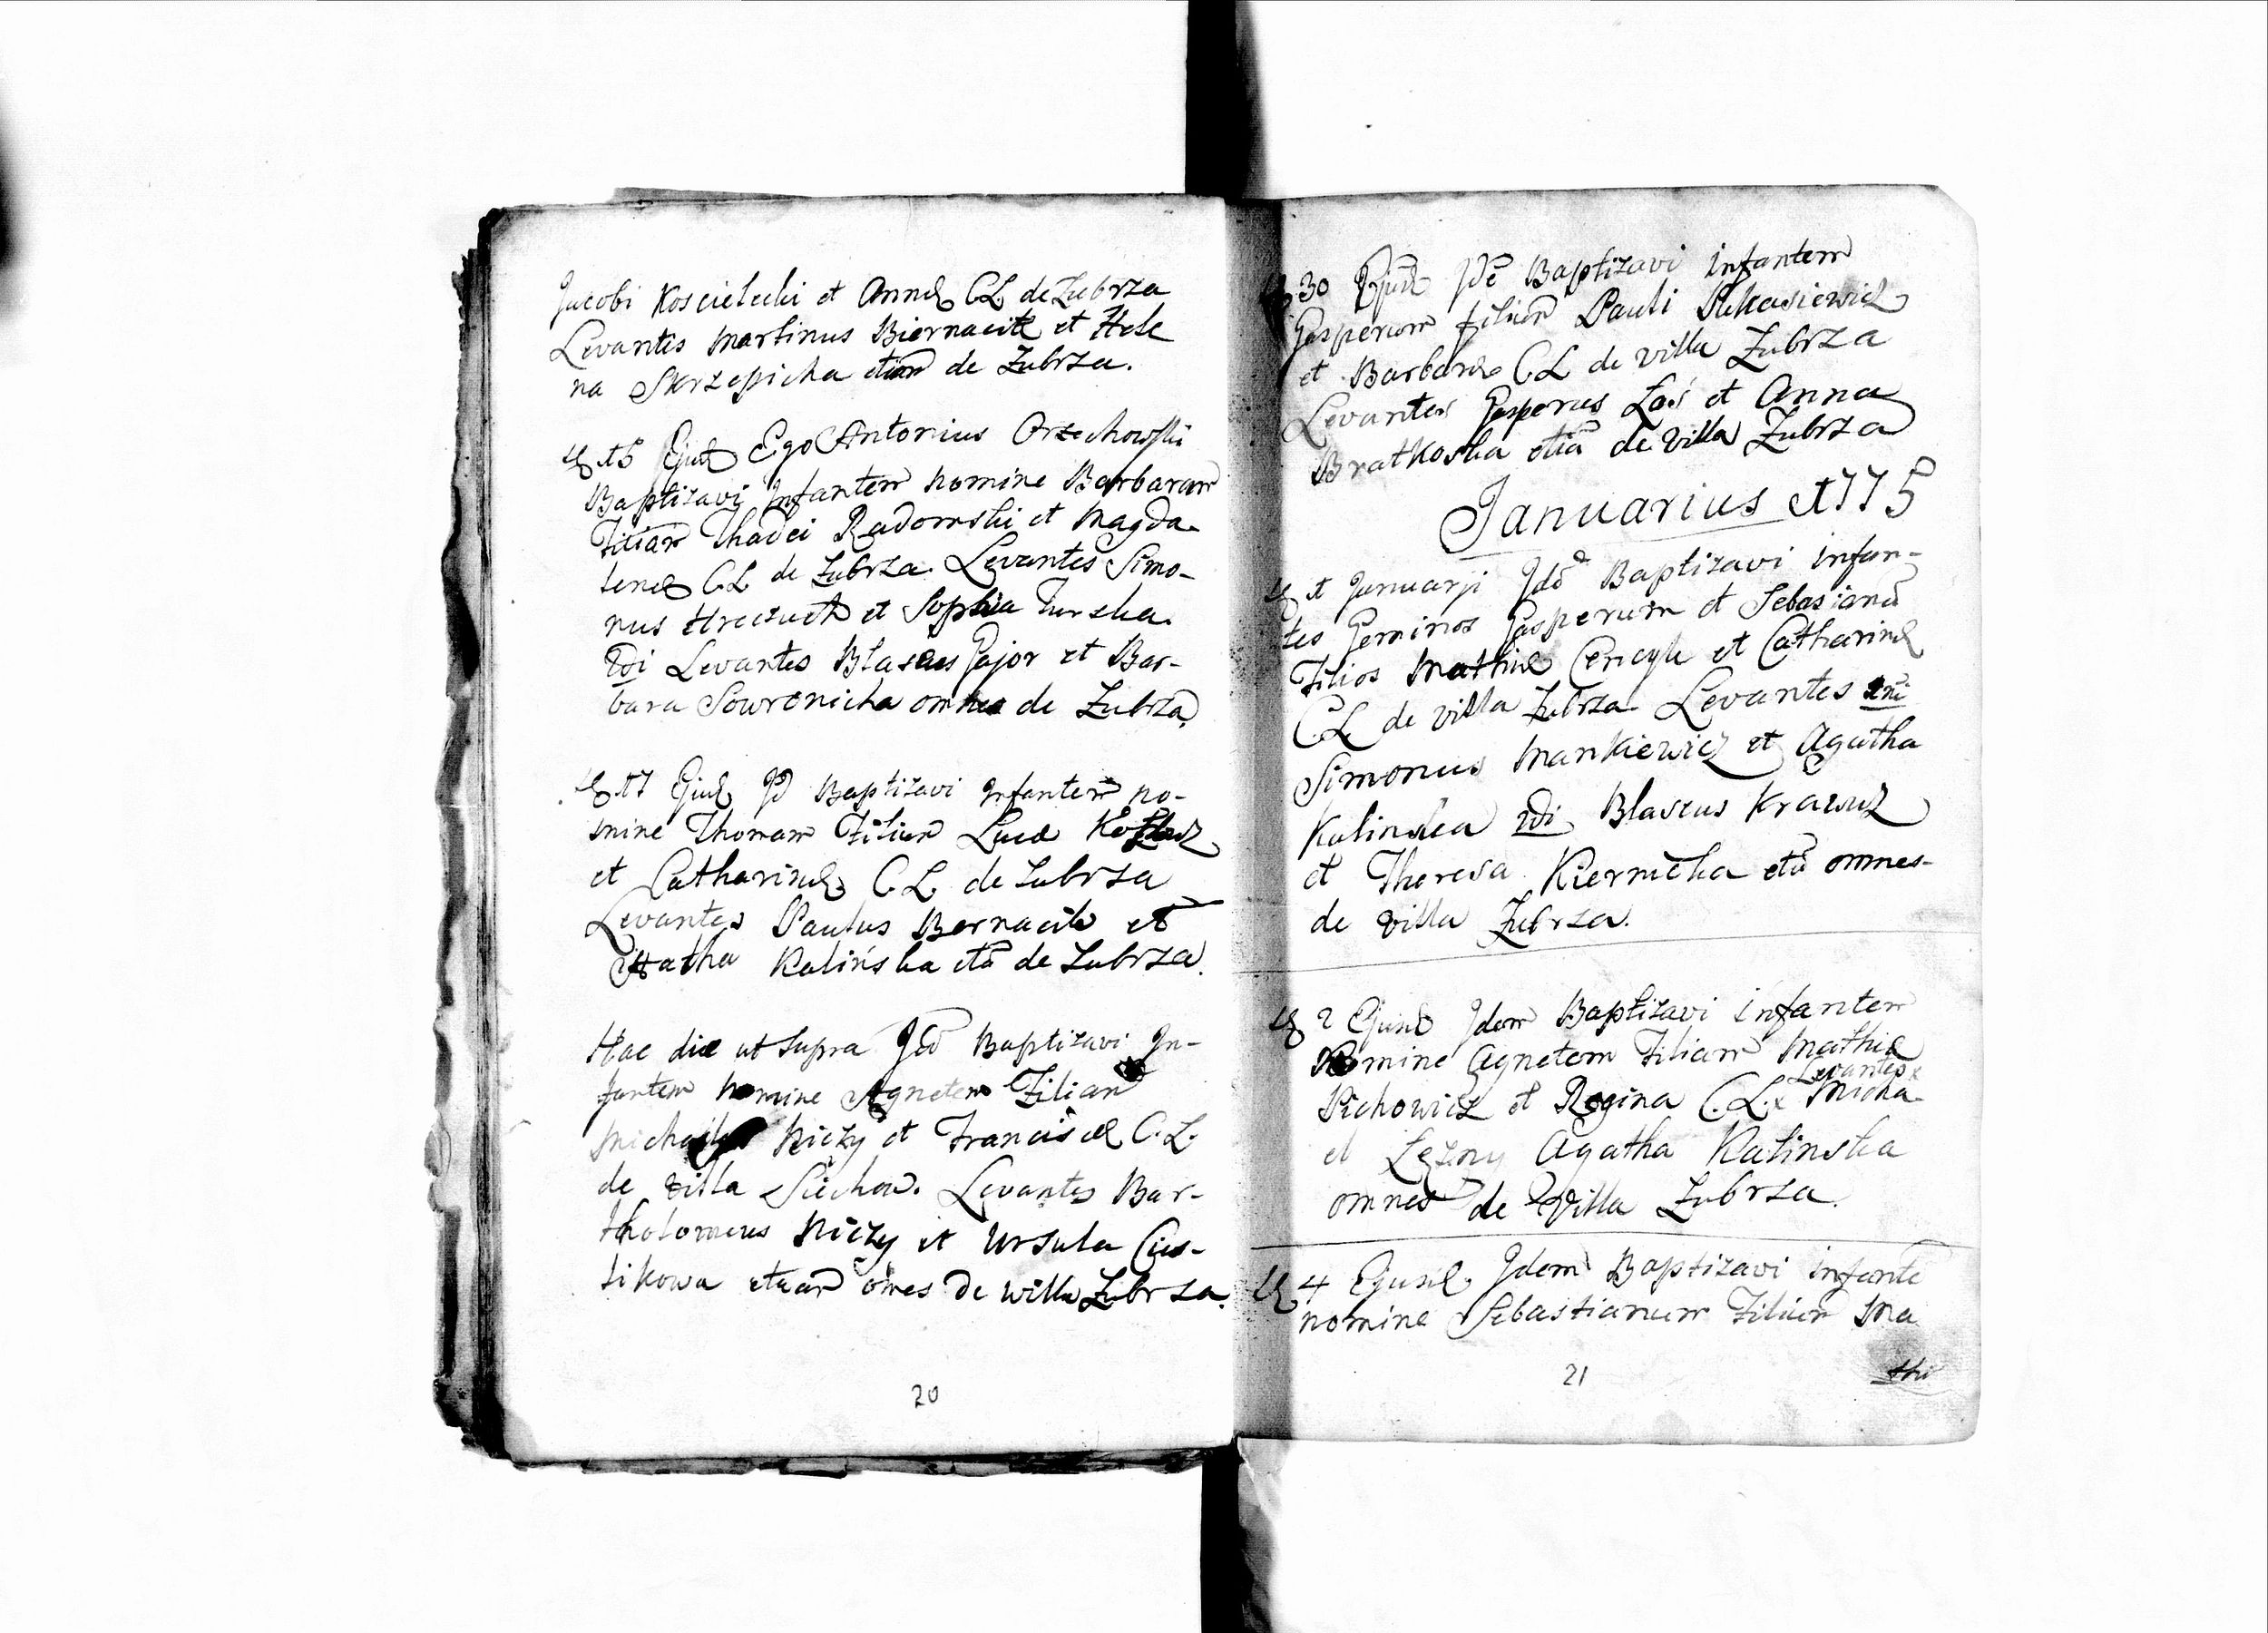 Jacobi Koscielecki et Annæ CL de Zubrza
Levantes Martinus Biernacik et Hele
na Skrzepicka etiam de Zubrza.
15 Ejusd Ego Antonius Orzechowski
Baptizavi Infantem nomine Barbaram
Filiam Thadei Radomski et Magda-
lenæ CL de Zubrza. Levantes Simo-
nus et Sophia Turska.
2di Levantes Blasius Gajor et Bar-
bara Sowronicha omnes de Zubrza.
17 Ejusd Id Baptizavi Infantem no-
mine Thomam Filium Lucæ
et Catharinæ C.L. de Zubrza
Levantes Paulus Bernacik et
Agatha Kalińska etã de Zubrza.
Hac die ut supra Idẽ Baptizavi In-
fantem nomine Agnetem Filiam
Michaelis Niczy et Franciscæ C.L.
de villa Siechow. Levantes Bar-
tholomeus Niczy et Ursula Cius-
sikowa etiam oẽs de villa Zubrza.
20
30 Ejusd Idẽ Baptizavi infantem
Gasperum filium Pauli Łukasiewicz
et Barbaræ CL de villa Zubrza
Levantes Gasperus Łoś et Anna
Bratkoska etiã de villa Zubrza
Januarius 1775
1 Januarji Idẽ Baptizavi infan-
tes Geminos Gasperum et Sebasianũ
Filios Mathiæ Cencyk et Catharinæ
CL de villa Zubrza Levantes 1mi
Simonus Mankiewicz et Agatha
Kalinska 2di Blasius Krawucz
et Theresa Kiernicka etã omnes
de villa Zubrza.
2 Ejusd Idem Baptizavi infantem
Nomine Agnetem Filiam Mathiæ
Levantes
Pichowicz et Regina C.L. x Micha
el Lezny Agatha Kalinska
omnes de Villa Zubrza.
4 Ejusd. Idem Baptizavi infante
nomine Sebastianum Filium Ma
21
thi